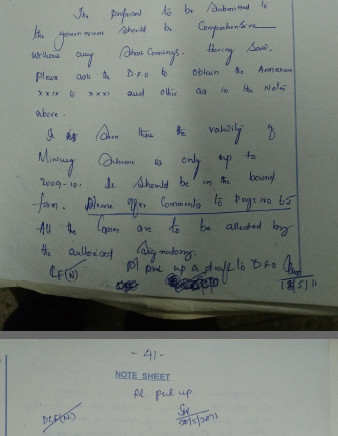 The proposal to be submitted to
the government should be Comprehensive
without any Short Comings. Having said,
Please ask the D.F.O to obtain the Annexure
XXIX to XXXI and other as in the Note
above.
It is Seen that the validity of
Mining Scheme is only up to
2009-10. It should be in the bound
form. Please offer Comments to Page No 65
All the Copies are to be attested by
the authorised Signatory.
CF(N) Pl put up a draft to DFO
- 41 -
NOTE SHEET
Pl put up
DCF(N) 20/5/2011